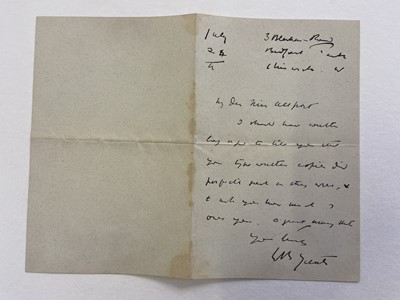 July
3 Blenheim Road
24
Bedford Park
Chiswick. W
My Dear Miss Allport
I should have written
long ago to tell you that
your type written copies did
perfectly
as they were, &
to ask you how much I
owe you. A great many
Yours sincely
W B Yeats